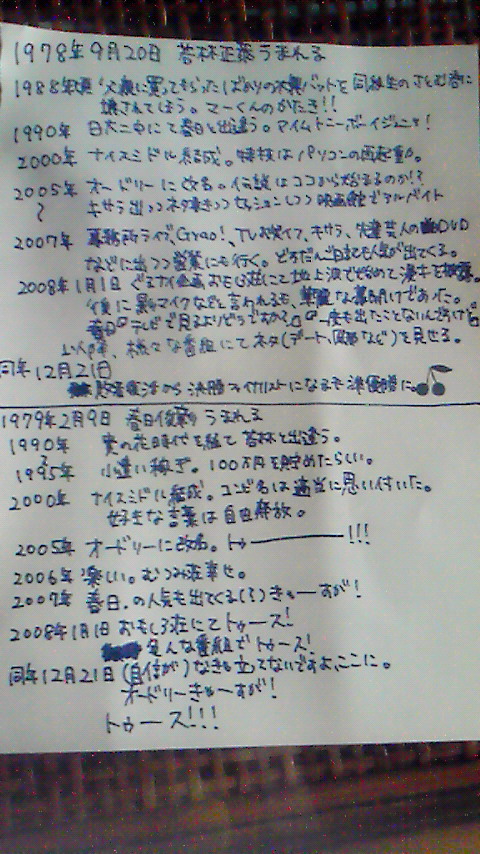 1978年9月20日 若林正恭うまれる
1988年頃 父親に買ってもらったばかりの木製バットを同級生のさとむ君に
壊されてしまう。マーくんのかたき!!
1990年 日大二中にて春日と出逢う。アイムトニーボーイジュニア!
2000年 ナイスミドル結成。特技はパソコンの再起動。
2005年 オードリーに改名。伝説はココから始まるのか!?
〜 キサラ出つつネタ書きつつセッションしつつ映画館でアルバイト
2007年 事務所ライブ、Grao!、TVお笑イフ、キサラ、先達芸人のDVD
などに出つつ営業にも行く。どろだんご日記も人気が出てくる。
2008年1月1日 ぐるナイ企画おもしろ荘にて地上波で初めて漫才を披露。
後に黒いマイクなどと言われるも、華麗な幕明けであった。
春日『テレビで見るよりどうですか?』『一度も出たことないんですけど』
様々な番組にてネタ(デート、など)を見せる。
同年12月21日
敗者復活から決勝ファイナリストになるも準優勝に。
1979年2月9日 春日俊彰うまれる
1990年 実の花時代を経て若林と出逢う。
1995年 小遣い稼ぎ。100万円を貯めたらしい。
2000年 ナイスミドル結成。コンビ名は適当に思い付いた。
好きな言葉は自由奔放。
2005年 オードリーに改名。トゥ――――!!!
2006年 楽しい。むつみ荘幸せ。
2007年 春日.の人気も出てくる(?)きゃーすが!
2008年1月1日 おもしろ荘にてトゥース!
色んな番組でトゥース!
同年12月21日 (自信が)なきゃ立ってないですよ、ここに。
オードリーきゃーすが!
トゥース!!!